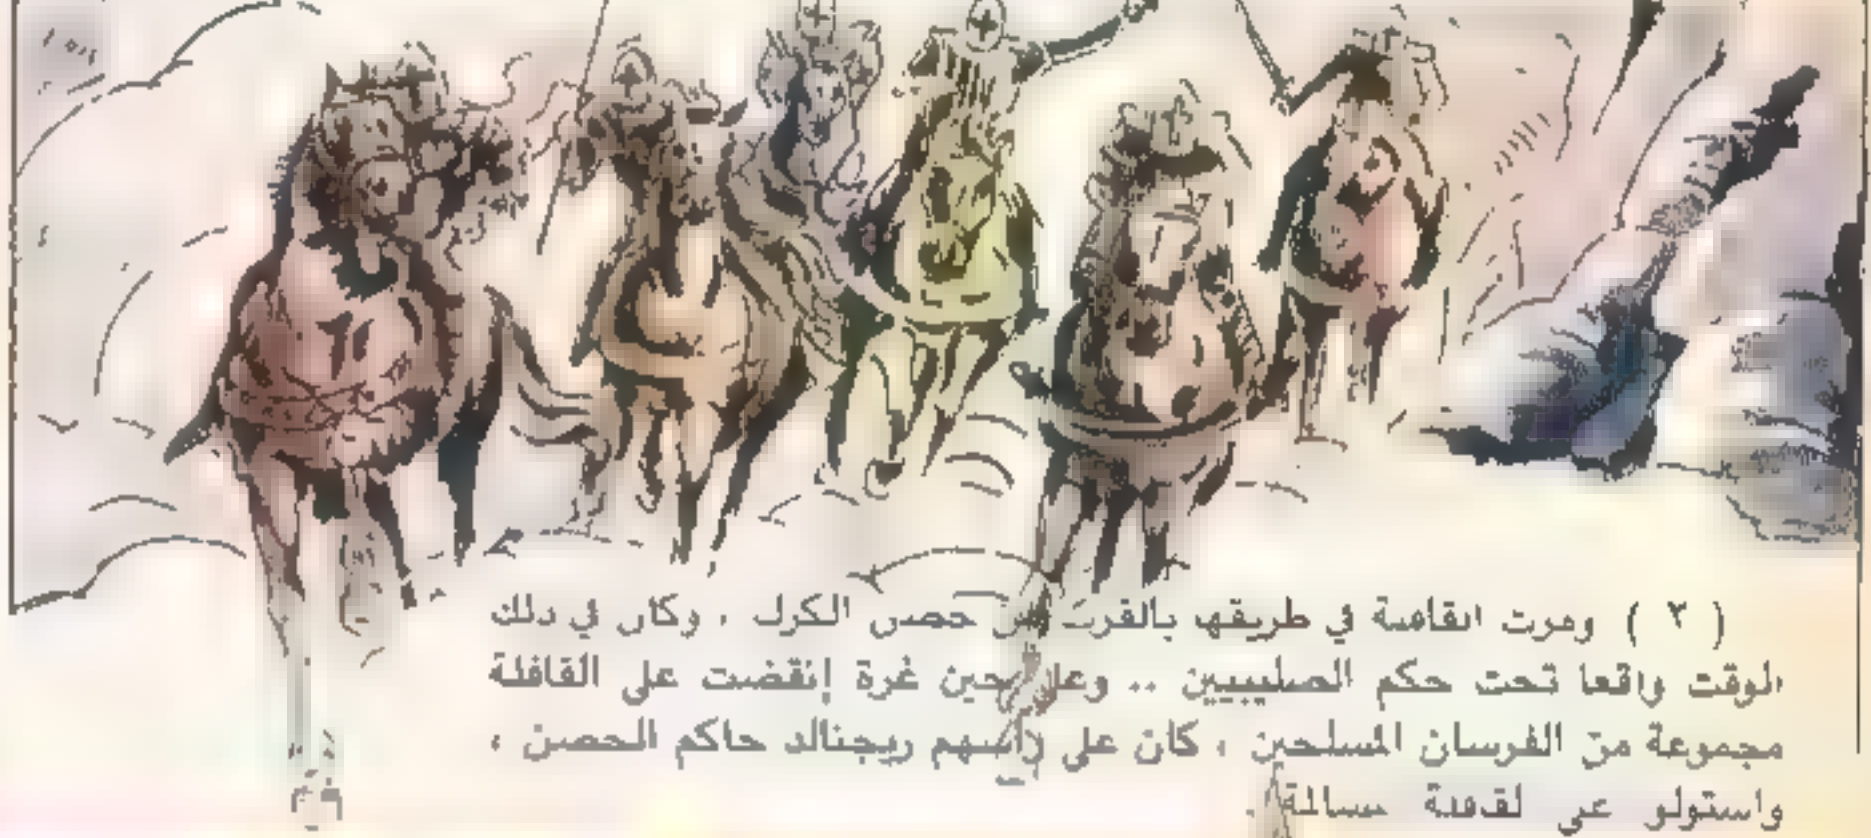 ( ٢ ) ومرت القافلة في طريقها بالقرب من حصن الكرك ، وكان في ذلك
الوقت واقعا تحت حكم الصليبيين .. وعلى حين غرة إنقضت على القافلة
مجموعة من الفرسان المسلحين ، كان على رأسهم ريجنالد حاكم الحصن ،
واستولوا على القافلة